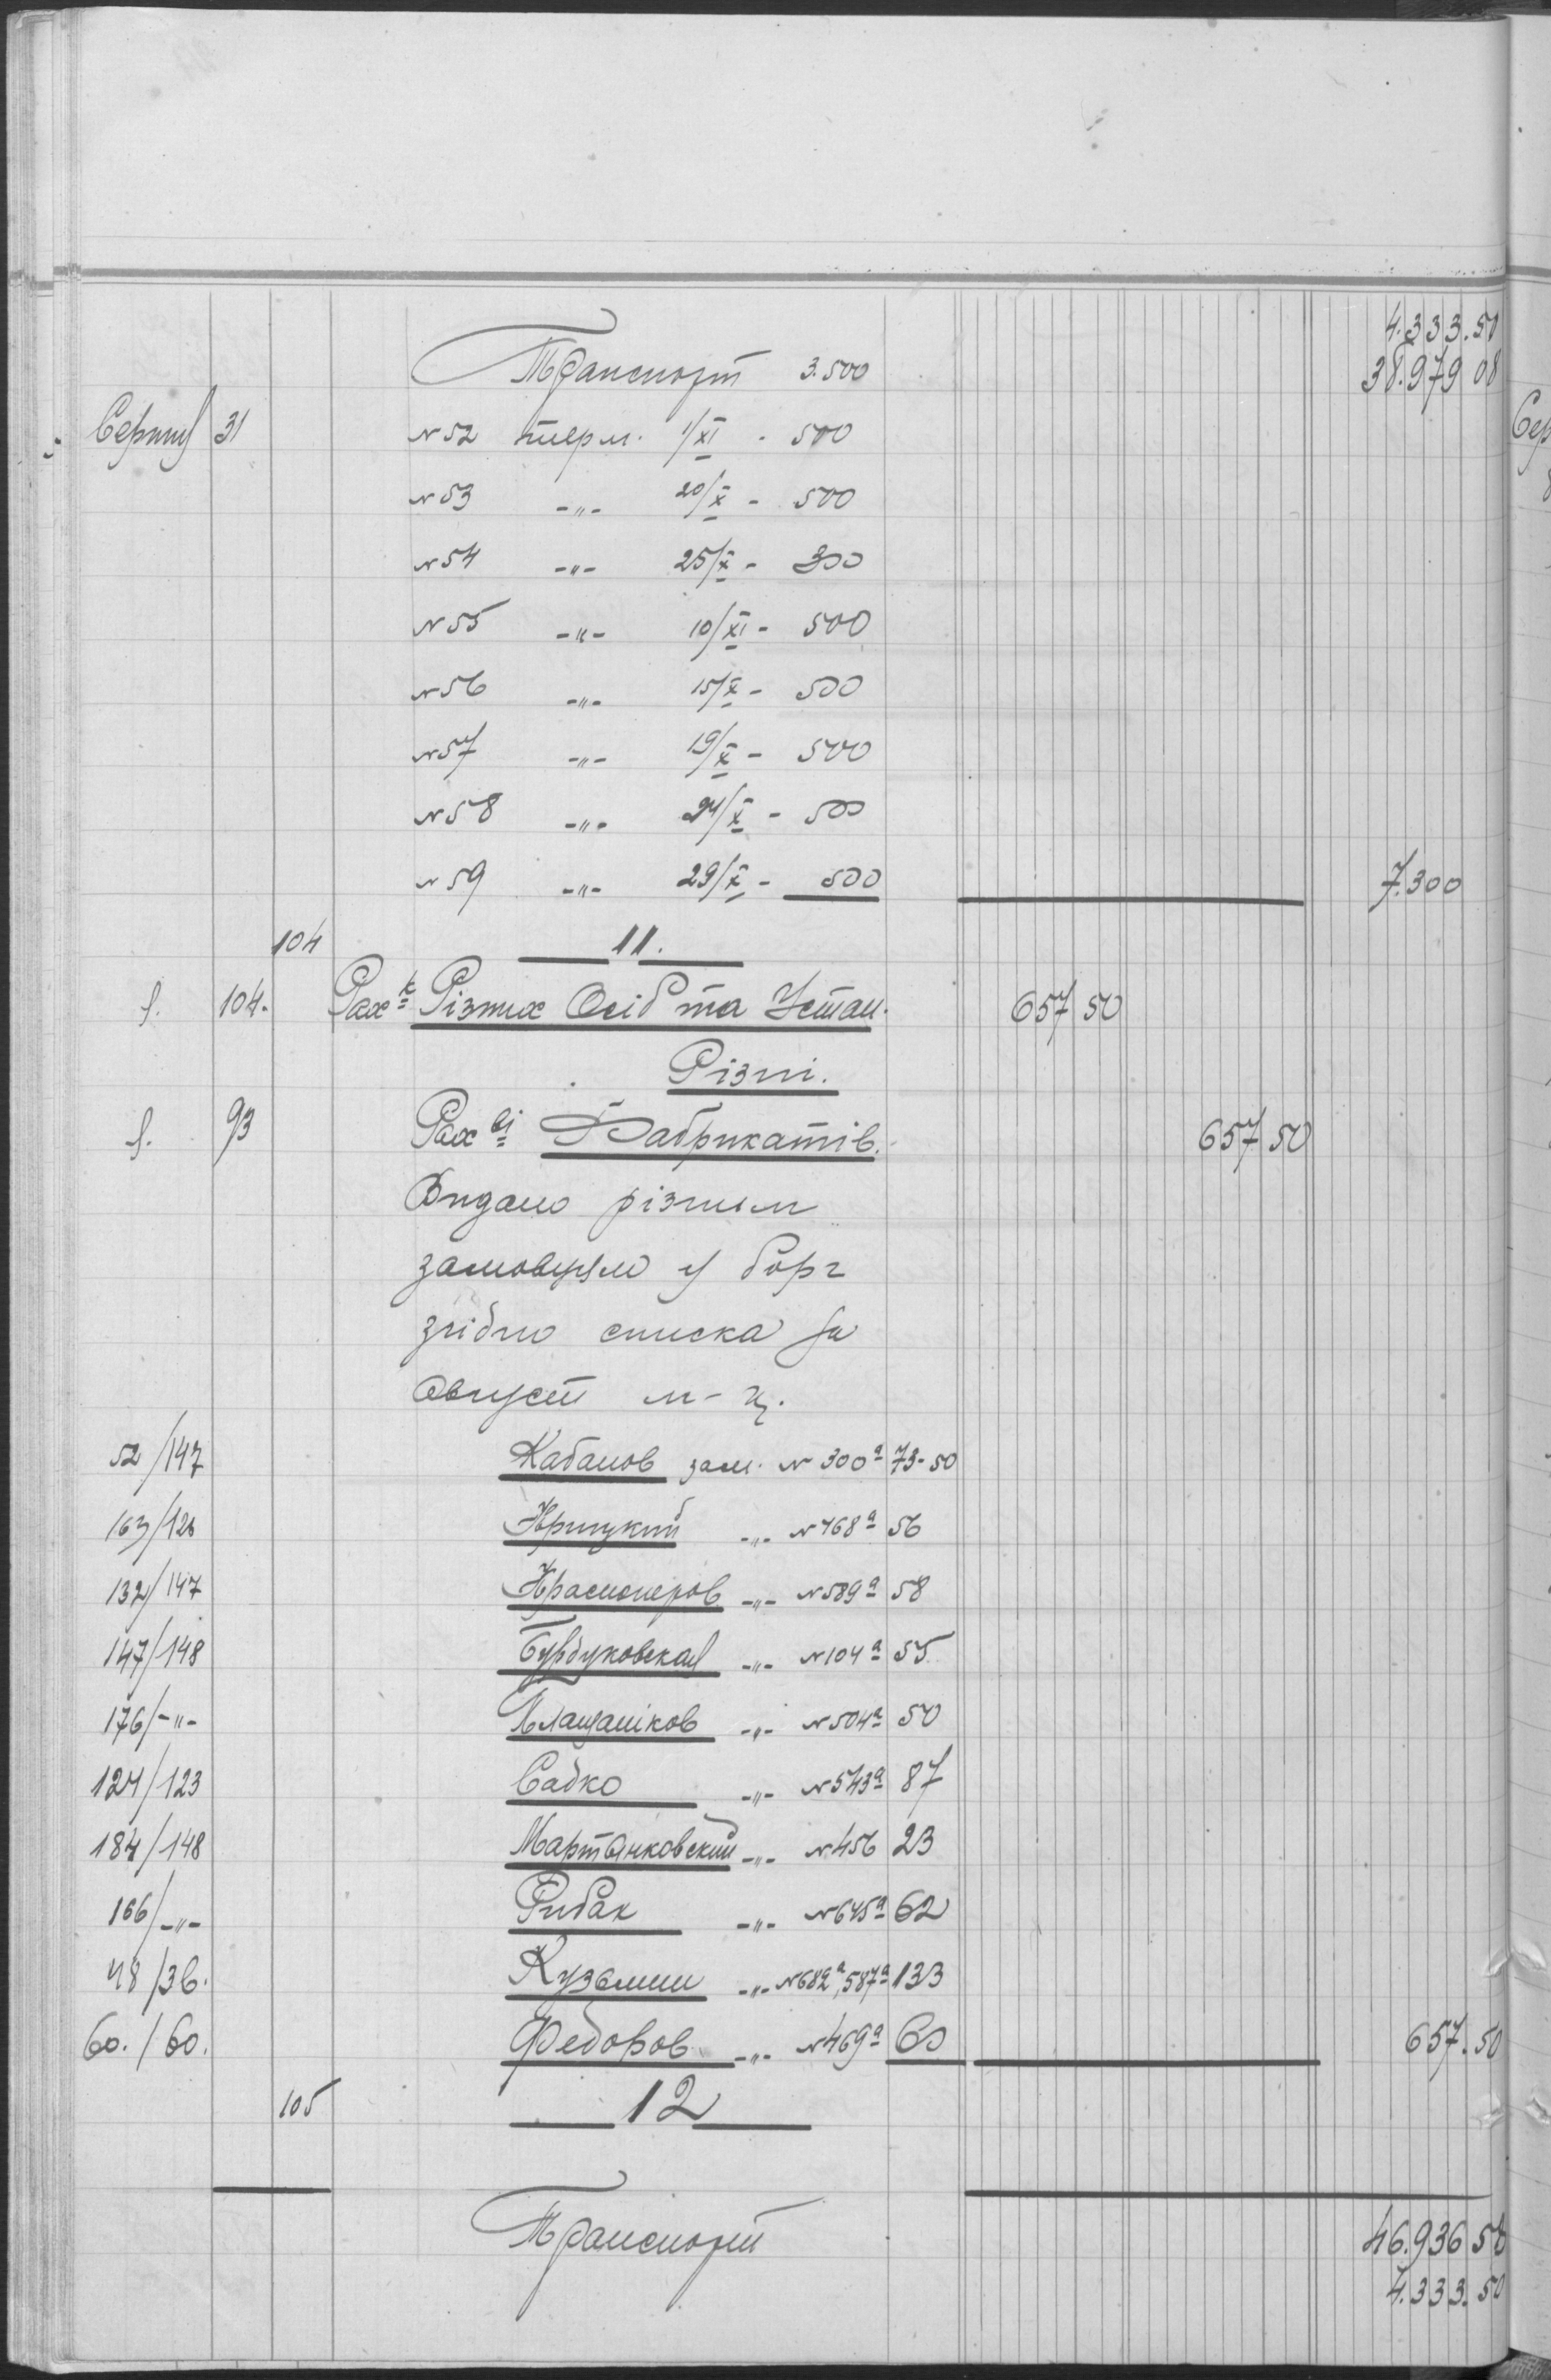 4.333.50
Транспорт 3.500 38.979 08
Серпня 31 №52 терм. 1/XI - 500
№53 -"- 20/X - 500
№54 -"- 25/X - 300
№55 -"- 10/XI - 500
№56 -"- 15/X - 500
№57 -"- 19/X - 500
№58 -"- 24/X - 500
№59 -"- 29/X - 500 7.300
104 11.
104. Рах к Різних Осіб та Устан. 657 50
Різні.
93 Рах ві Фабрикатів. 657 50
Видано різним
замовцям у борг
згідно списка за
Август м-ц.
52/147 Кабанов зам. № 300а 73-50
163/128 Крицкий -"- №468а 56
132/147 Красноперов -"- №589а 58
147/148 Бурдуковская -"- №104а 55
176/-"- Плащаніков -"- №504а 50
124/123 Садко -"- №543а 87
184/148 Мартинковский -"- №456 23
166/-"- Рибак -"- №645а 62
48/36. Кузьмин -"- №682а, 587а 133
60./60. Федоров -"- №469а 60 657.50
105 12
Транспорт 46.936 58
4.333.50